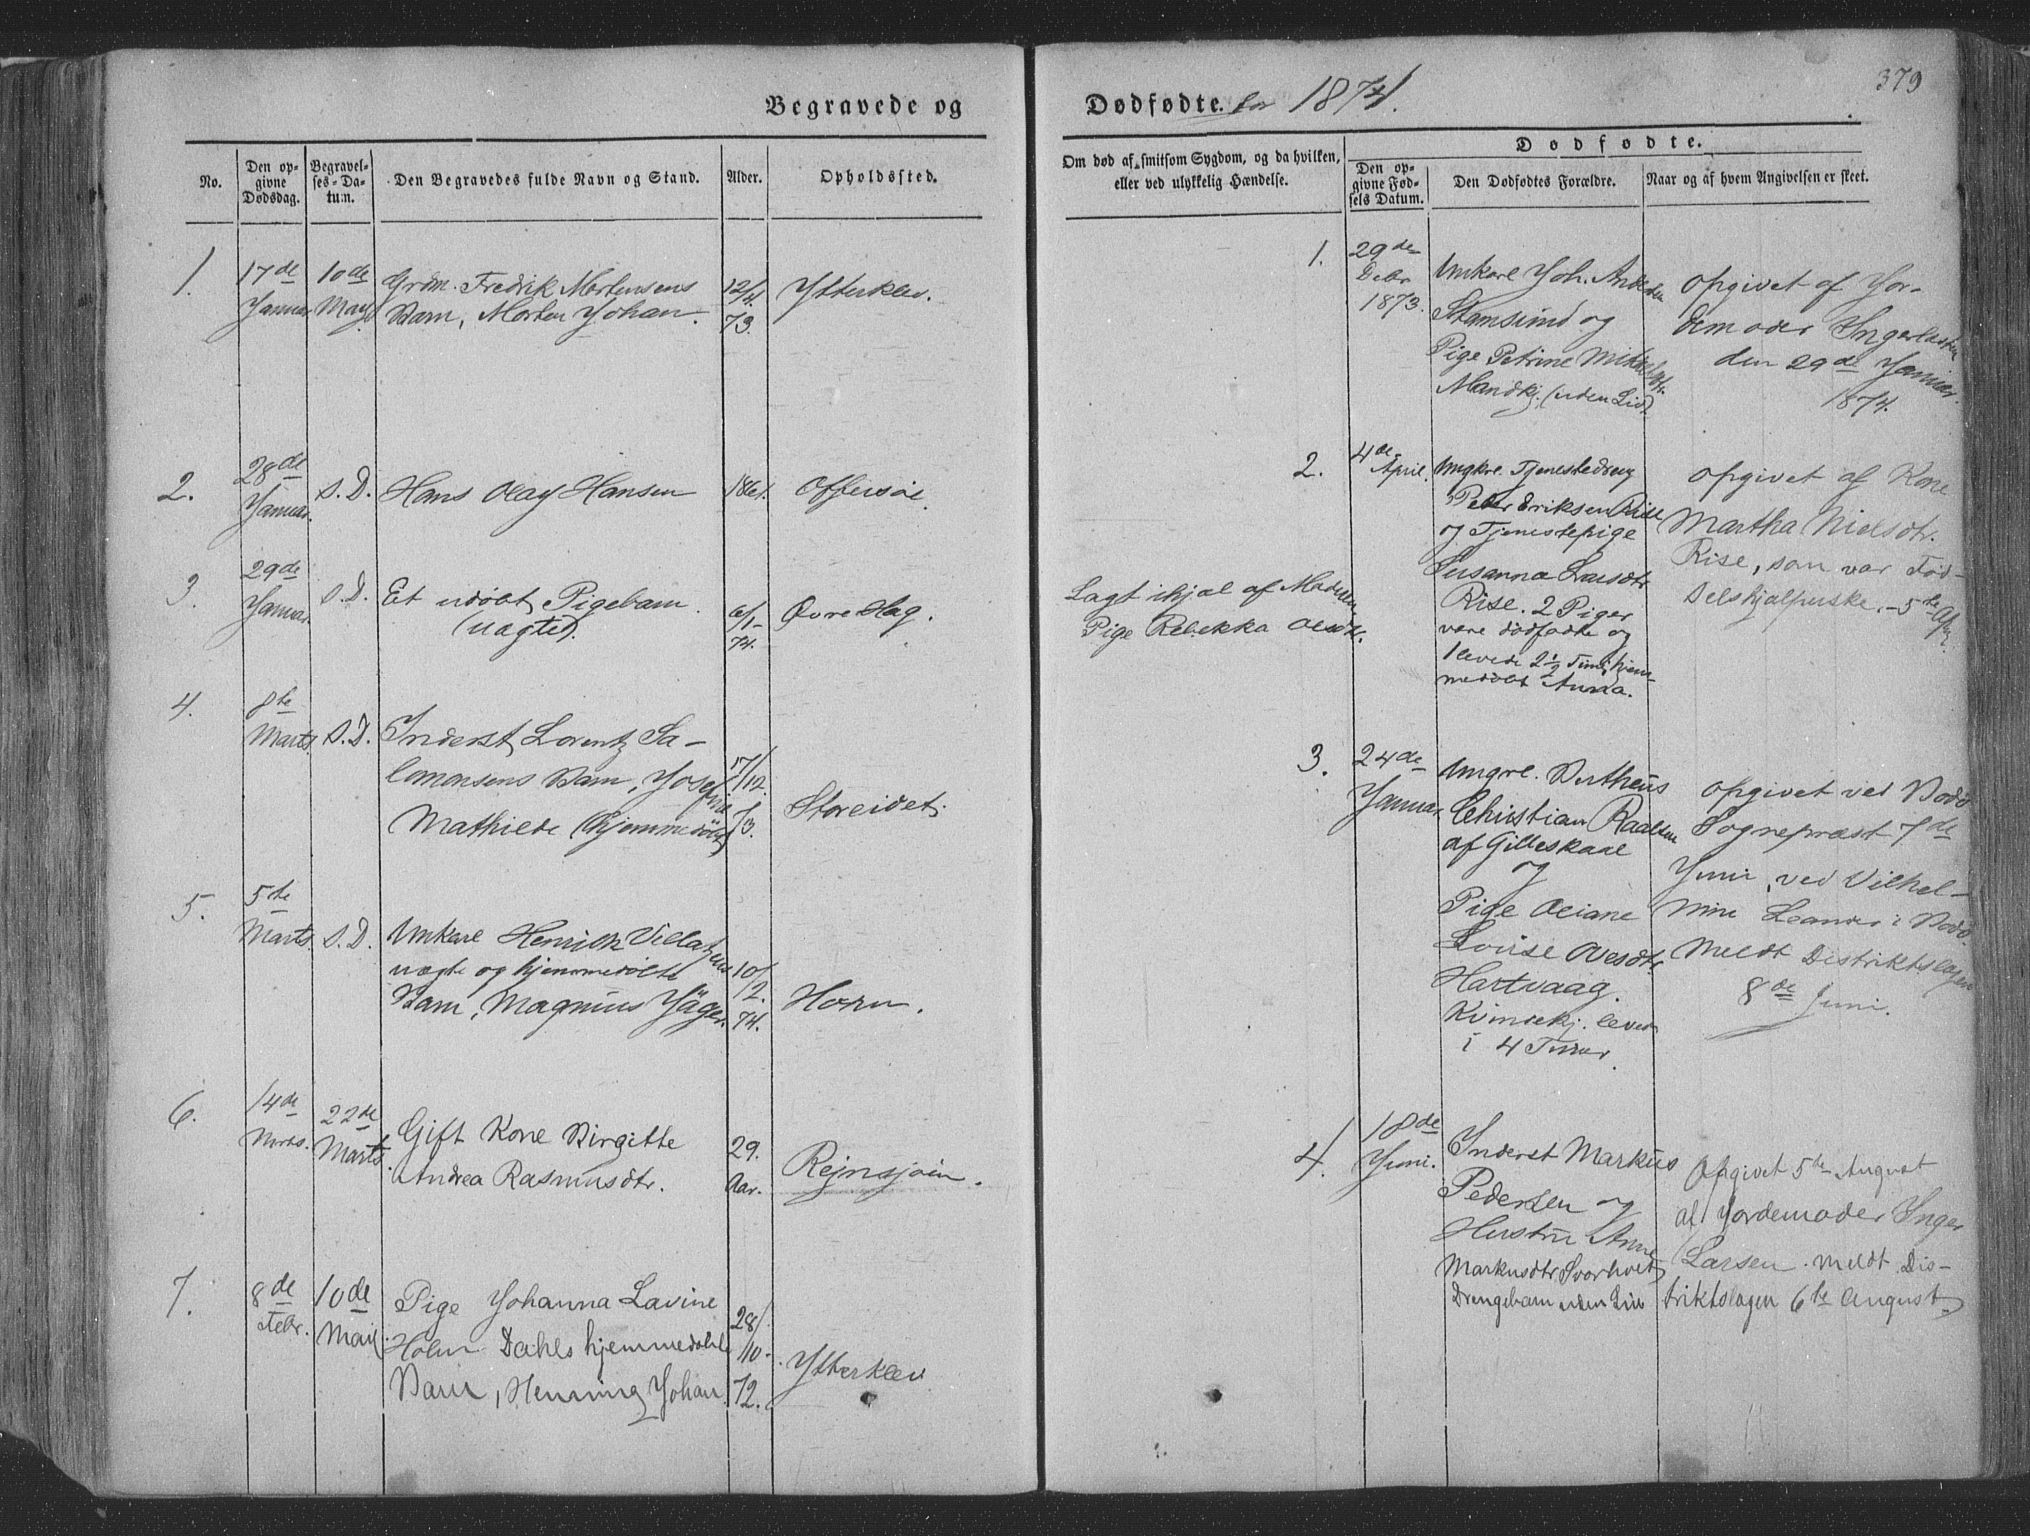 379
Begravede og
Dødfødte. for 1874.
No.
Den op-
givne
Dødsdag.
Begravel-
ses-Da-
tum.
Den Begravedes fulde Navn og Stand.
Alder.
Opholdssted.
Om død af smitsom Sygdom, og da hvilken,
eller ved ulykkelig Hændelse.
Dødfødte.
Den op-
givne Fød-
sels Datum.
Den Dødfødtes Forældre.
Naar og af hvem Angivelsen er skeet.
1.
17de
Januar
10de
May
Grdm. Fredrik Mortensens
Barn, Morten Johan.
12/4.
73.
Ytterklev.
2.
28de
Januar.
s. D.
Hans Olay Hansen
1861.
Offersøi.
3.
29de
Januar.
s. D.
Et udøbt Pigebarn.
(uægte).
6/1-
74.
Øvre Hag.
Lagt ihjel af Moderen
Pige Rebekka Olsdtr.
4.
8te
Marts.
s. D.
Inderst Lorentz Sa-
lomonsens Barn, Josefine
Mathilde (hjemmedøbt)
17/
12.
73.
Storeidet.
5.
5te
Marts
s. D.
Unkarl Henrich Villatzens
uægte og hjemmedøbte
Barn, Magnus Jäger.
10/
2.
74.
Horn.
6.
14de
Marts.
22de
Marts.
Gift Kone Birgitte
Andrea Rasmusdtr.
29.
Aar.
Rejnsjøin.
7.
8de
Febr.
10de
Mai
Pige Johanna Lavine
Holm Dahls hjemmedøbte
Barn, Henning Johan
28/
10.
72.
Ytterklev
1.
29de
Debr
1873.
Unkarl Joh. Andersen
Stamsund og
Pige Petrine Mikkelsdtr.
Mandkj. (uden Liv).
opgivet af Jor-
demoder Inger Larsen
den 29de Januar.
1874.
2.
4de
April.
Ungkrl. Tjenestedreng
Peder Eriksen Rise
og Tjenestepige
Susanna Larsdtr
Rise. 2 Piger
vare dødfødte og
1 levede 2 1/2 Time, hjem-
medøbt Anna.
opgivet af Kone
Martha Nielsdtr.
Rise, som var Fød-
selshjælperske. - 5te April.
3.
24de
Januar.
Ungkrl. Bertheus
Christian Paalsen
af Gilleskaal
og
Pige Oliane
Lovise Ovesdtr
Hartvaag.
Kvindekj. levede
i 4 Timer
opgivet ved Bodø
Sognepræst 7de
Juni, ved Vilhel-
mine Leander i Bodø.
Meldt Distriktslægen
8de Juni.
4.
18de
Juni.
Inderst Markus
Pedersen og
Hustru Anne
Markusdtr. Svarholt
Drengebarn uden Liv
Opgivet 5te August
af Jordemoder Inger
Larsen. meldt Dis-
triktslægen 6te August.